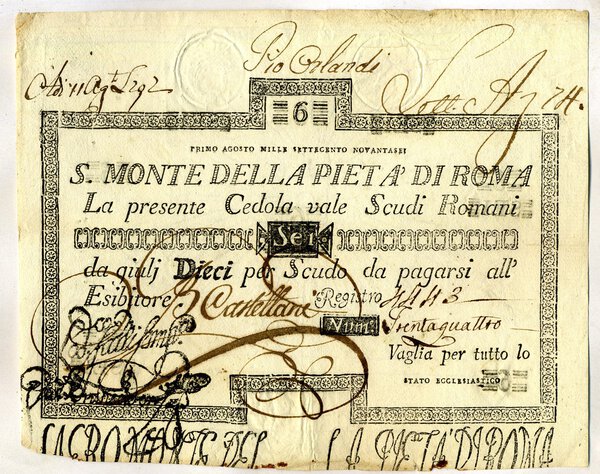 Pio Orlandi
Sott. A 74.
6
PRIMO AGOSTO MILLE SETTEGENTO NOVANTASEI
S. MONTE DELLA PIETA' DI ROMA
La presente Cedola vale Scudi Romani
Sei
da giulj Dieci per Scudo da pagarsi all'
Esibitore Castellani Registro 4143
Num. Trentaquattro
Vaglia per tutto lo
STATO ECCLESIASTICO
SACRO MONTE DEL LA PIETA' DI ROMA